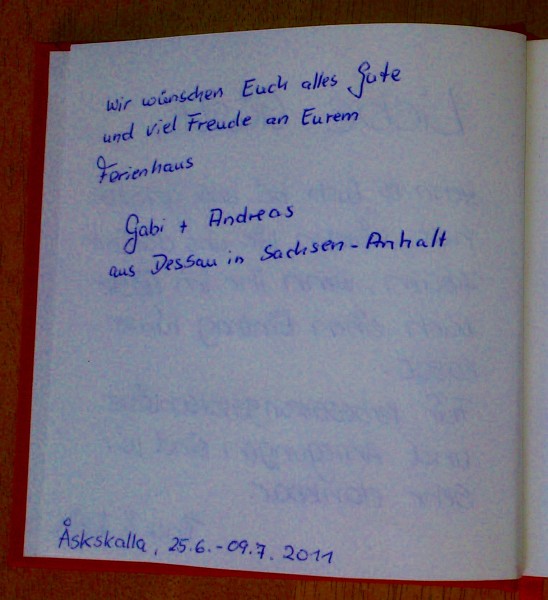 wir wünschen Euch alles Gute
und viel Freude an Eurem
Ferienhaus
Gabi + Andreas
aus Dessau in Sachsen-Anhalt
Åskskalla, 25.6.-09.7. 2011